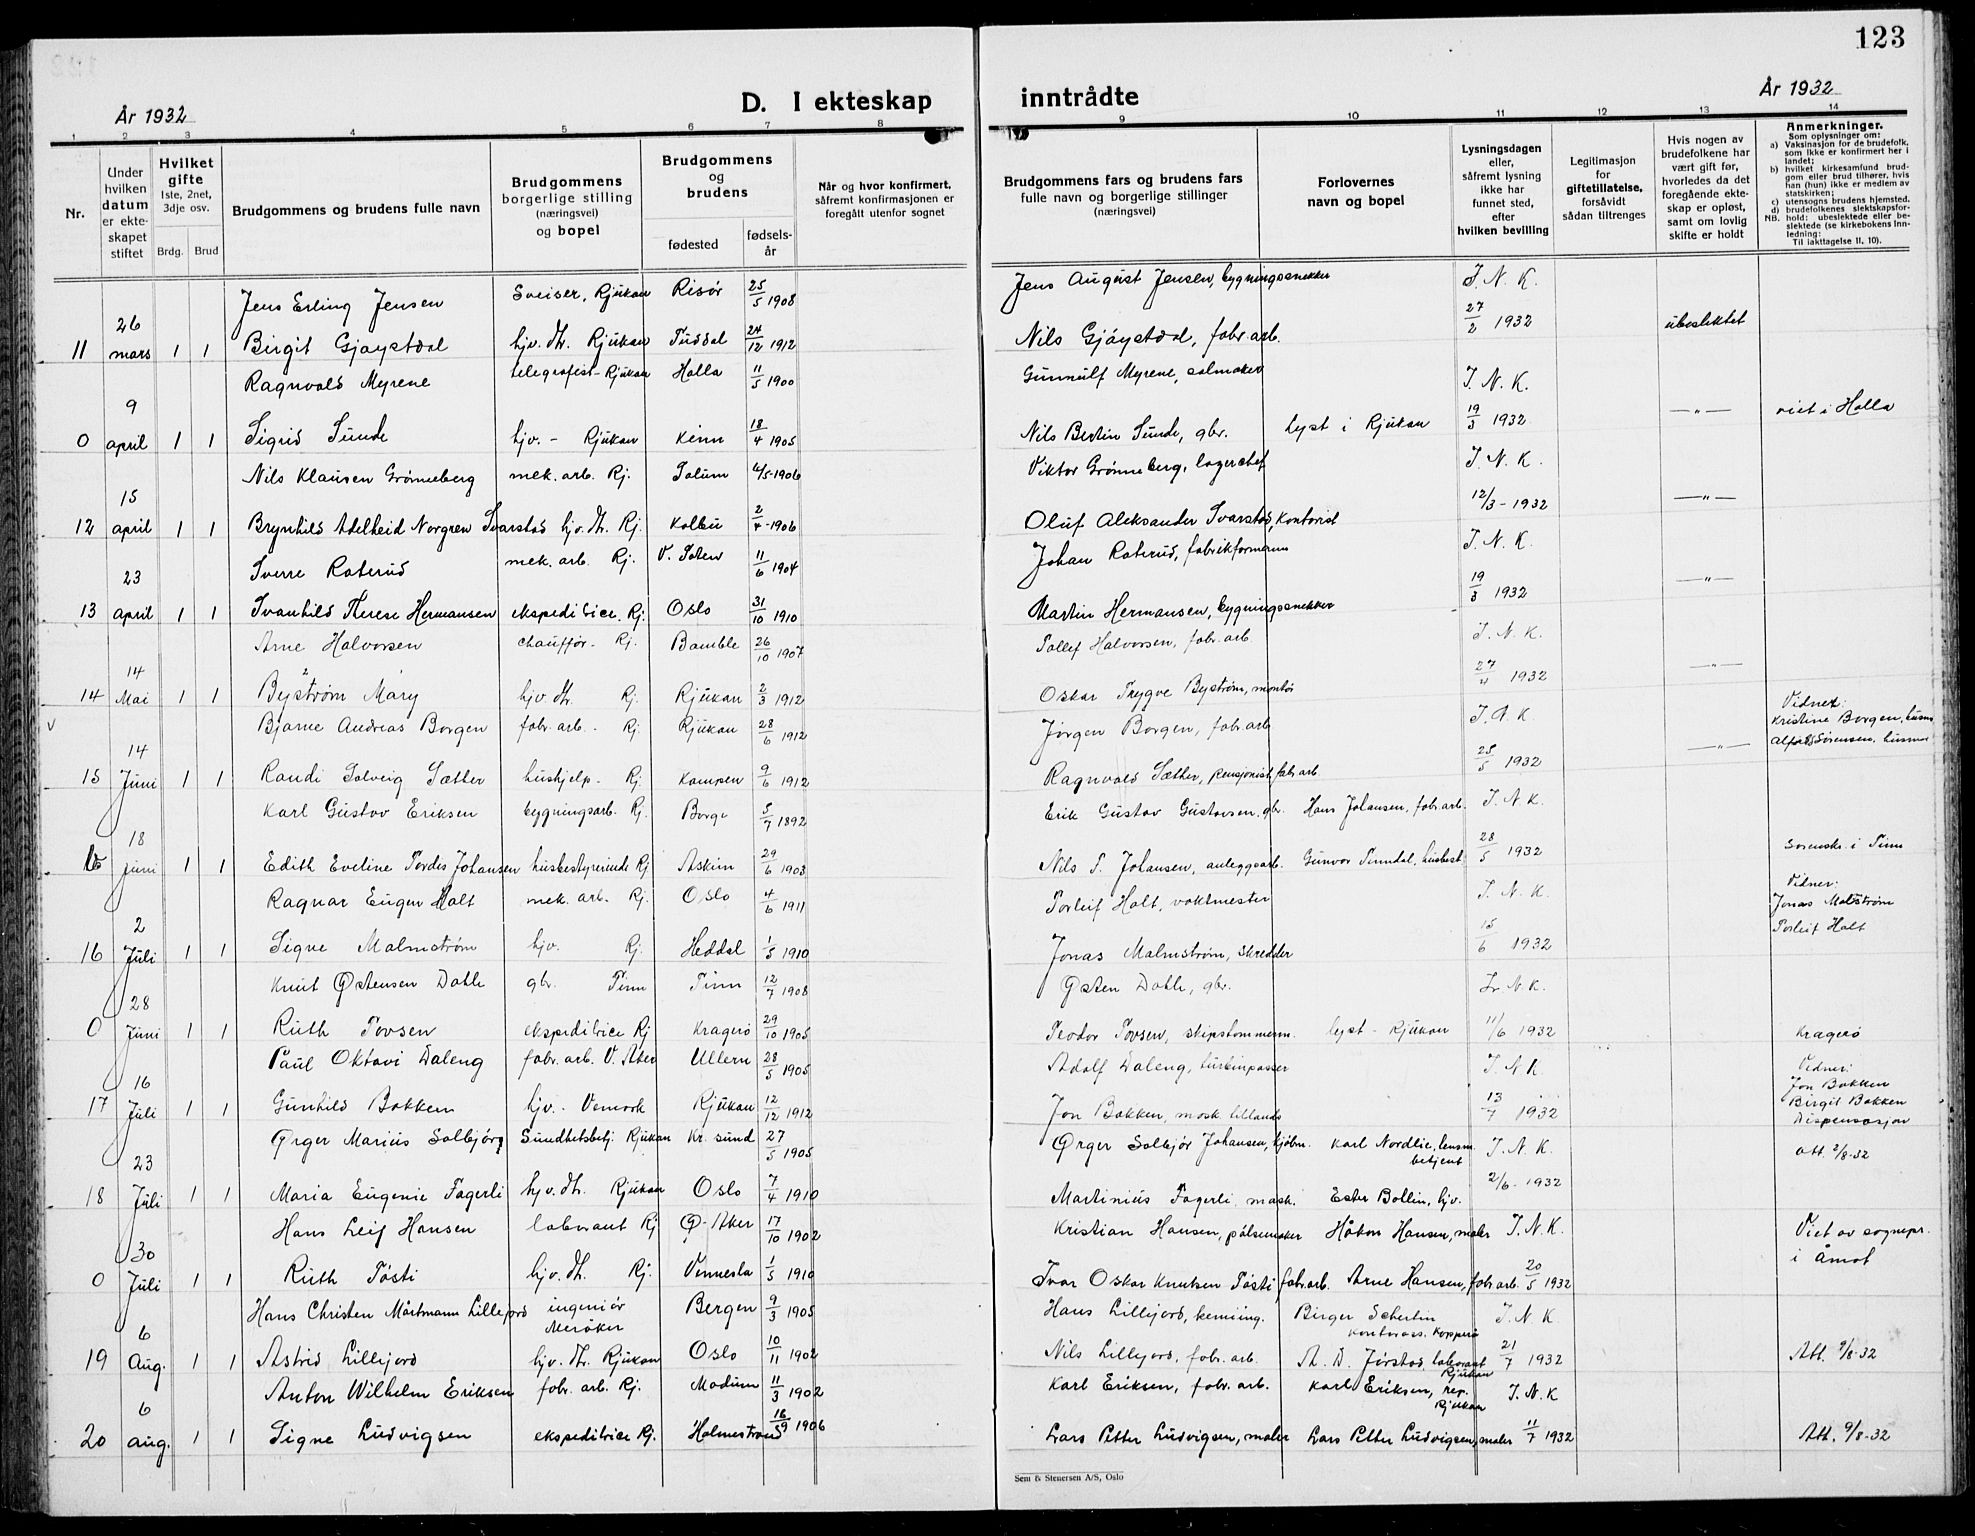 123
År 1932
D. I ekteskap
inntrådte
År 1932
1 2 3 4 5 6 7 8 9 10 11 12 13 14
Nr.
Under
hvilken
datum
er ekte-
skapet
stiftet
Hvilket
gifte
1ste, 2net,
3dje osv.
Brdg. Brud
Brudgommens og brudens fulle navn
Brudgommens
borgerlige stilling
(næringsvei)
og bopel
Brudgommens
og
brudens
fødested
fødsels-
år
Når og hvor konfirmert,
såfremt konfirmasjonen er
foregått utenfor sognet
Brudgommens fars og brudens fars
fulle navn og borgerlige stillinger
(næringsvei)
Forlovernes
navn og bopel
Lysningsdagen
eller,
såfremt lysning
ikke har
funnet sted,
efter
hvilken bevilling
Legitimasjon
for
giftetillatelse,
forsåvidt
sådan tiltrenges
Hvis nogen av
brudefolkene har
vært gift før,
hvorledes da det
foregående ekte-
skap er opløst,
samt om lovlig
skifte er holdt
Anmerkninger.
Som oplysninger om:
a) Vaksinasjon for de brudefolk,
som ikke er konfirmert her i
landet;
b) hvilket kirkesamfund brud-
gom eller brud tilhører, hvis
han (hun) ikke er medlem av
statskirken;
c) utensogns brudens hjemsted.
d) brudefolkenes slektskapsfor-
NB. hold: ubeslektede eller be-
slektede (se kirkebokens inn-
ledning:
Til iakttagelse 11, 10).
Jens Erling Jensen Sveiser, Rjukan Risör 25/5 1908 Jens August Jensen, bygningssnekker I. N. K.
11 26 mars 1 1 Birgit Gjøystdal hjv. dtr. Rjukan Tuddal 24/12 1912 Nils Gjöystdal, fabr. arb. 27/2 1932 ubeslektet
Ragnvald Myrene telegrafist - Rjukan Holla 11/5 1900 Gunnulf Myrene, salmaker I. N. K.
0 9 april 1 1 Sigrid Sunde hjv. - Rjukan Kinn 18/4 1905 Nils Bertin Sunde, gbr. lyst i Rjukan 19/3 1932 —"— viet i Holla
Nils Klausen Grønneberg mek. arb. Rj. Solum 6/5-1906 Viktor Grønneberg, lagerchef I. N. K.
12 15 april 1 1 Brynhild Adelheid Norgren Svarstad hjv. dtr. Rj. Kolbu 2/4-1906 Oluf Aleksander Svarstad, kontorist 12/3-1932 —"—
Sverre Roterud mek. arb. Rj. V. Toten 11/6 1904 Johan Roterud, fabrikformann I. N. K.
13 23 april 1 1 Svanhild Therese Hermansen ekspeditrice. Rj. Oslo 31/10 1910 Martin Hermansen, bygningssnekker 19/3 1932 —"—
Arne Halvorsen chauffør. Rj. Bamble 26/10 1907 Tollef Halvorsen, fabr. arb. I. N. K.
14 14 Mai 1 1 Byström Mary hjv. dtr. Rj. Rjukan 2/3 1912 Oskar Trygve Byström, montör 27/4 1932 —"—
v Bjarne Andreas Borgen fabr. arb. - Rj. Rjukan 28/6 1912 Jørgen Borgen, fabr. arb I. N. K. Vidner: Kristine Borgen, husm.
15 14 Juni 1 1 Randi Solveig Sæther hushjelp - Rj. Kampen 9/6 1912 Ragnvald Sæther, pensjonist, fabr. arb. 28/5 1932 —"— Sørensen, husmor
Karl Gustav Eriksen bygningsarb. Rj. Borge 5/7 1892 Erik Gustav Gustavsen, gbr. Hans Johansen, fabr. arb. I. N. K.
18 Juni 1 1 Edith Eveline Tordis Johansen husbestyrerinde Rj Askim 29/6 1903 Nils T. Johansen, anleggsarb. Gunvor Tinndal, husbest. 28/5 1932 Sorenskr. i Tinn
Ragnar Eugen Holt mek. arb. Rj. Oslo 4/6 1911 Torleif Holt, vaktmester I. N. K. Vidner: Jonas Malmström
16 2 Juli 1 1 Signe Malmström hjv. Rj. Heddal 1/5 1910 Jonas Malmström, skredder 15/6 1932 Torleif Holt
Knut Østensen Dahle gbr. Tinn Tinn 12/7 1908 Østen Dahle, gbr. I. N. K.
0 28 Juni 1 1 Ruth Tovsen ekspeditrice Rj Kragerø 29/10 1905 Teodor Tovsen, skipstømmerm. lyst - Rjukan 11/6 1932 Kragerø
Paul Oktavi Daleng fabr. arb. V. Aker Ullern 28/5 1905 Adolf Daleng, turbinpasser I. N. K. Vidner: Jon Bakken
17 16 Juli 1 1 Gunhild Bakken hjv. - Vemork Rjukan 12/12 1912 Jon Bakken, mask. 13/7 1932 Birgit Bakken Dispensasjon
Ørger Marius Solbjørg Sundhetsbetj. Rjukan Kr. sund 27/5 1905 Ørger Solbjør Johansen, kjøbm. Karl Nordlie, lensm. betjent I. N. K. Att. 2/8-32
18 23 Juli 1 1 Maria Eugenie Fagerli hjv. dtr. Rjukan Oslo 7/4 1910 Martinius Fagerli, mask. Ester Bollin, hjv. 2/6-1932
Hans Leif Hansen laborant Rj Ø. Aker 17/10 1902 Kristian Hansen, pølsemaker Håkon Hansen, maler I. N. K. Viet av sognepr. i Åmot
0 30 Juli 1 1 Ruth Tösti hjv. dtr. Rj. Vennesla 1/5 1910 Ivar Oskar Knutsen Tösti, fabr. arb. Arne Hansen, fabr. arb. 20/5 1932
Hans Christen Mårtmann Lillejord ingeniör Meråker Bergen 9/3 1905 Hans Lillejord, kemiing. Birger Schertin I. N. K
19 6 Aug. 1 1 Astrid Lillejord hjv. dtr. Rjukan Oslo 10/11 1902 Nils Lillejord, fabr. arb. A. D. Jørstad, laborant Rjukan 21/7 1932 Att. 9/8-32
Anton Wilhelm Eriksen fabr. arb. Rj. Modum 11/3 1902 Karl Eriksen, fabr. arb. Karl Eriksen, rep. Rjukan I. N. K
20 6 aug. 1 1 Signe Ludvigsen ekspeditrice Rj. Holmestrand 16/9 1906 Lars Petter Ludvigsen, maler Lars Petter Ludvigsen, maler 11/7 1932 Att. 9/8-32
Sem & Stenersen A/S, Oslo